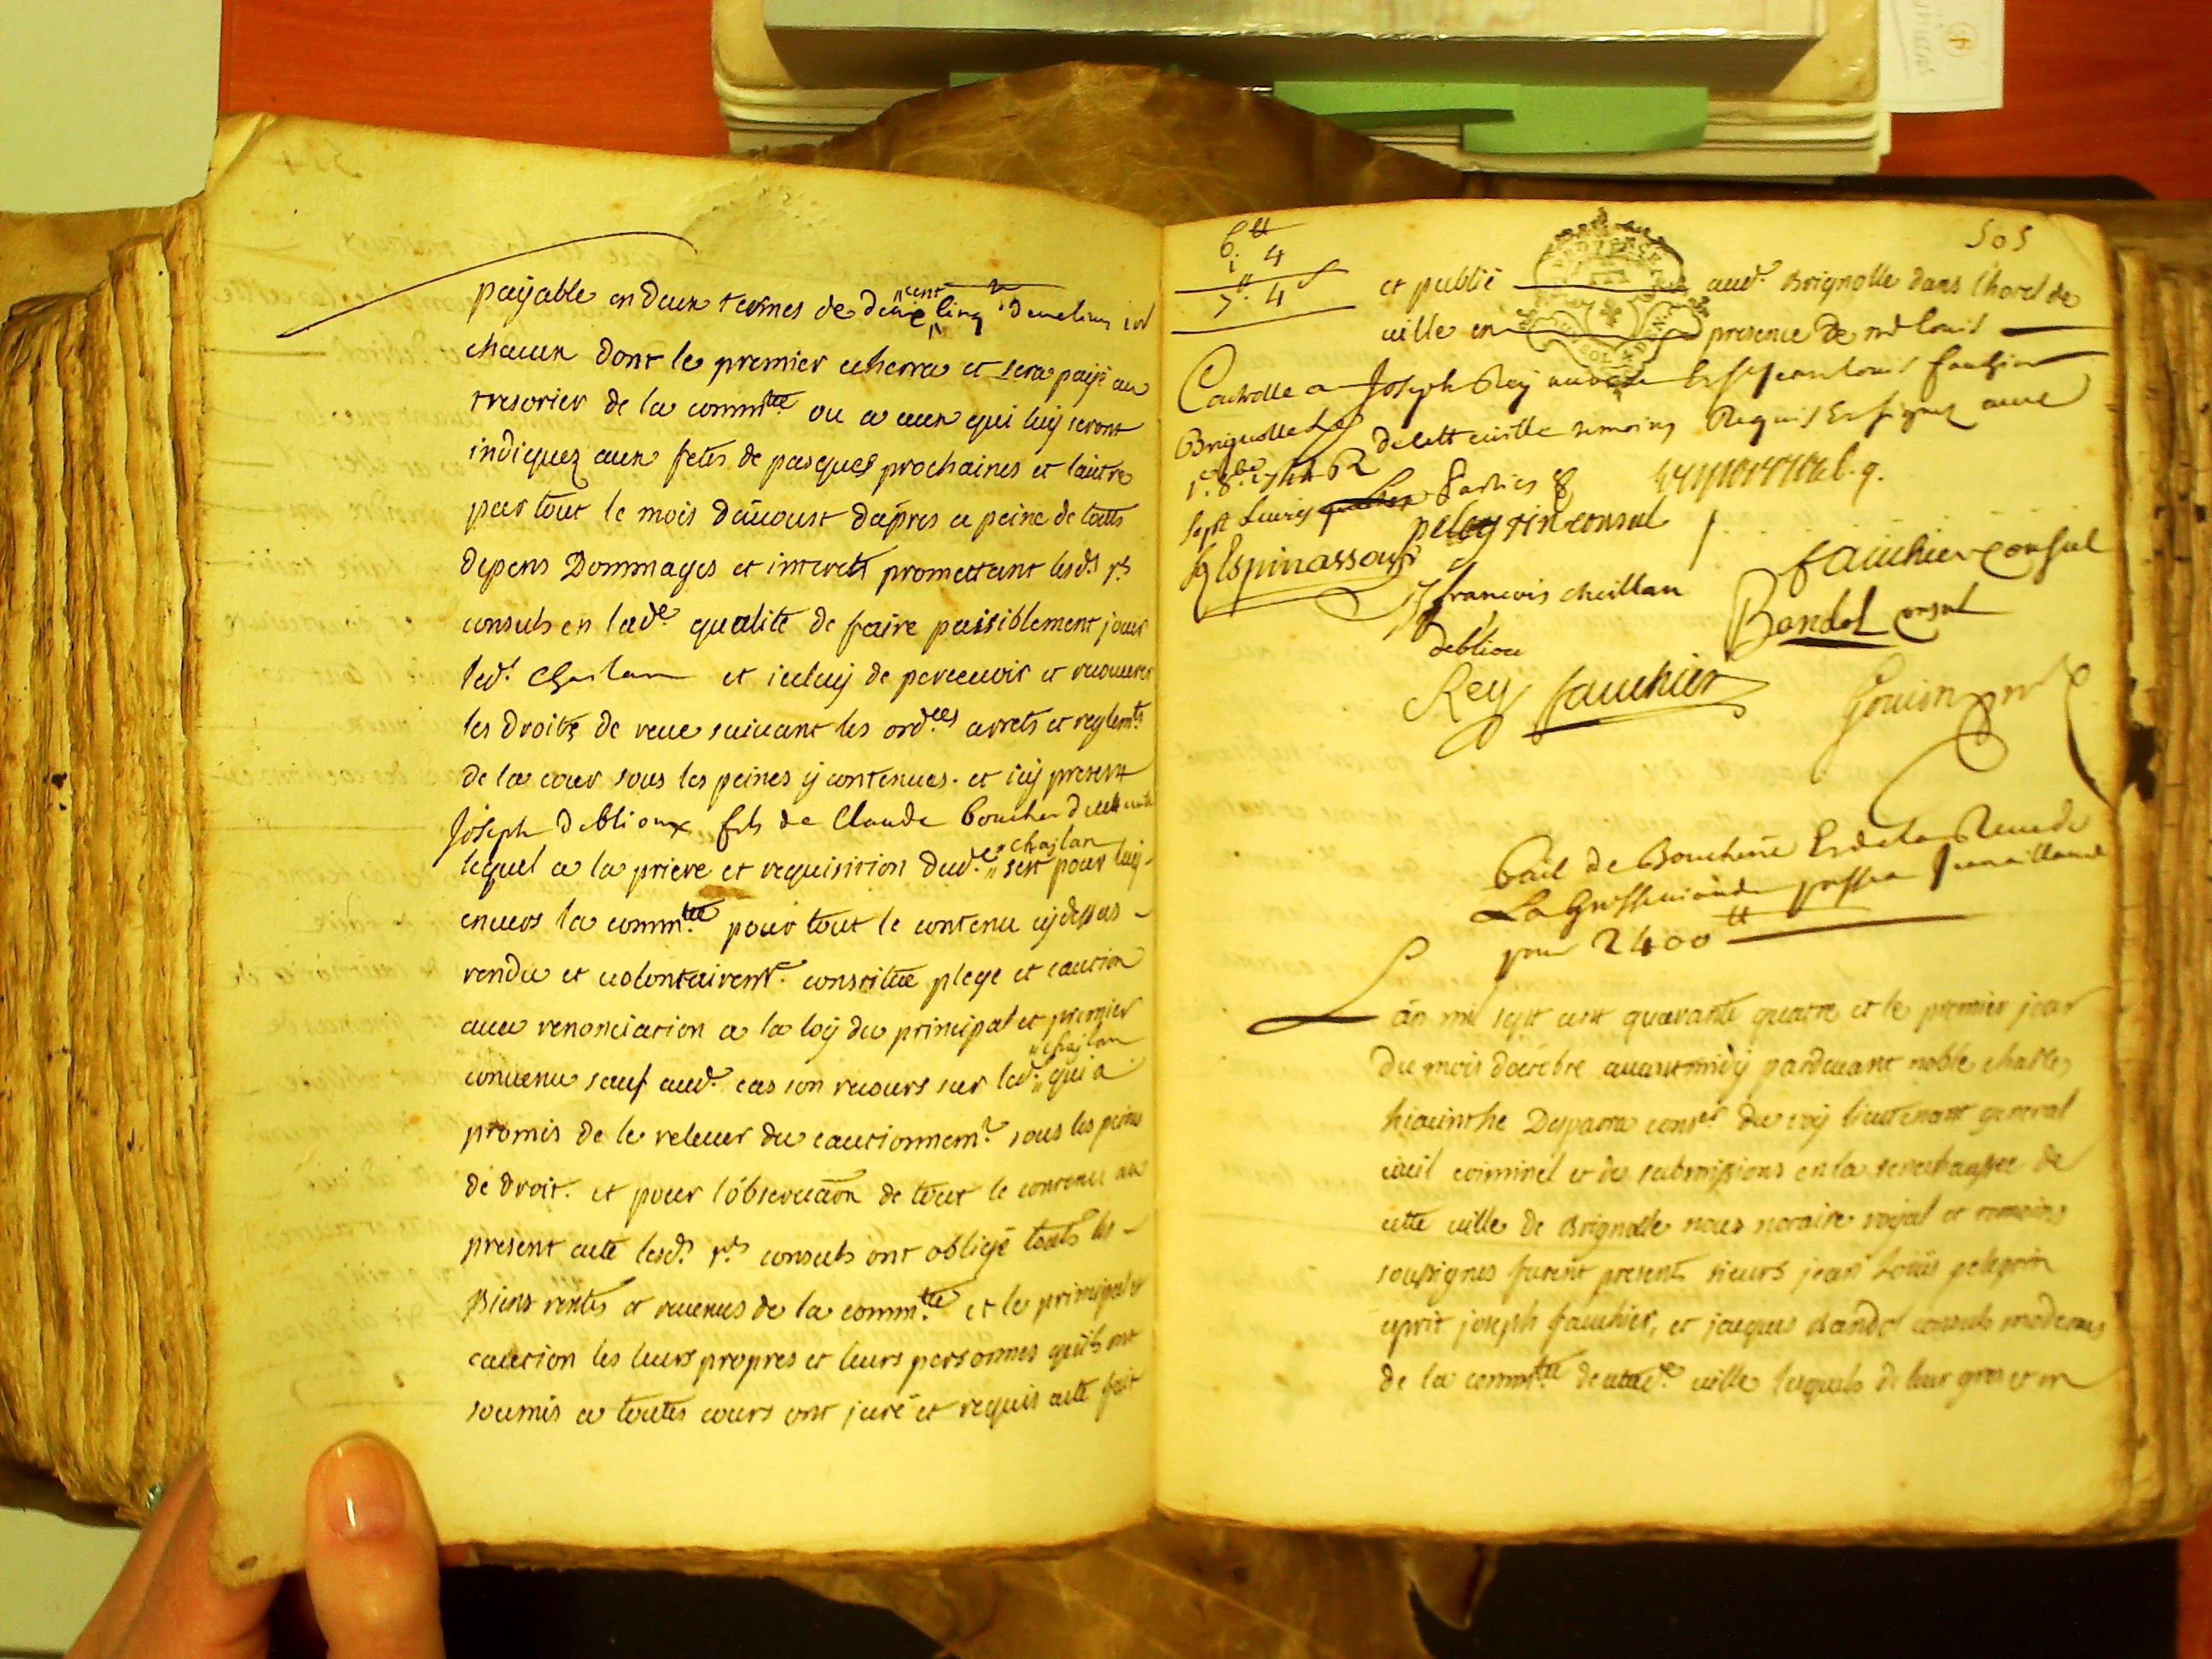 payable en deux termes de deux cent cinq
chacun dont le premier echerra et sera payé au
tresorier de la comm.té ou a ceux qui luy seront
indiquez aux fetes de pasques prochaines et lautre
par tout le mois d'auoust d'apres a peine de touts
depens Dommages et interets promettant lesd.s s.rs
consuls en lad.e qualité de faire paisiblement jouir
led.t Chailan et iceluy de perceuoir et recouurer
les droits de reue suiuant les ord.ces arrets et reglem.ts
de la cour sous les peines y contenues. et icy present
Joseph Deblioux fils de Claude boucher de cette ville
lequel a la priere et requisition dud. chaylan sest pour luy
enuers la comm.té pour tout le contenu cy dessus
rendu et uolontairem.t constitue plege et caution
auec renonciation a la loy du principal et premier
conuenu sauf aud. cas son recours sur led. chaylan qui a
promis de le releuer du cautionnem.t sous les peines
de droit. et pour lobseruaon de tout le contenu au
present acte lesd. s.rs consuls ont obligé touts les
Biens rentes et reuenus de la comm.té et le principal et
caution les leurs propres et leurs personnes quils ont
soumis a toutes cours ont juré et requis acte fait
505
6 tt 4
1
7 4 s
et publié aud. Brignolle dans lhotel de
uille en presence de m.e louis
Joseph Rey et s.r jean louis fauchier
de cette uille temoins Requis et signez auec
Parties
Controllé a
Brignolle le
1.er 8.bre 1744 R
sept Liures
Lespinassou
pelegrin consul
fauchier consul
francois cheillan
Bandol consul
deblieu
Rey fauchier
Gouin n.re
bail de Boucherie Et de la Reue de
La Grosse
pour 2400 tt
Lan mil sept cent quarante quatre et le premier jour
du mois doctobre auant midy pardeuant noble charles
hiacinthe Desparra cons.er du roy lieutenant general
ciuil criminel et des submissions en la senechaussee de
cette uille de Brignolle nous notaire royal et temoins
soussignes furent presents sieurs jean Louis pelegrin
esprit joseph fauchier, et jacques Bandol consuls modernes
de la comm.té de uille lesquels de leur gres et en